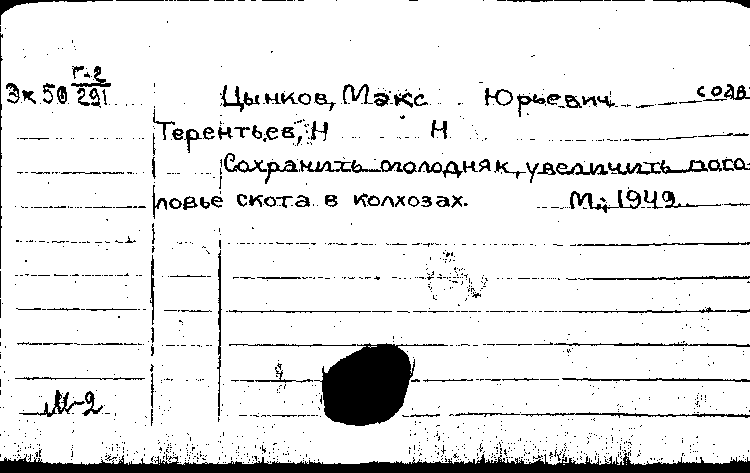 Г-2
Эк 50 291 Цынков, Макс Юрьевич соав
Терентьев, Н Н
Сохранить молодняк, увеличить пого
ловье скота в колхозах. М., 1949.
М-2